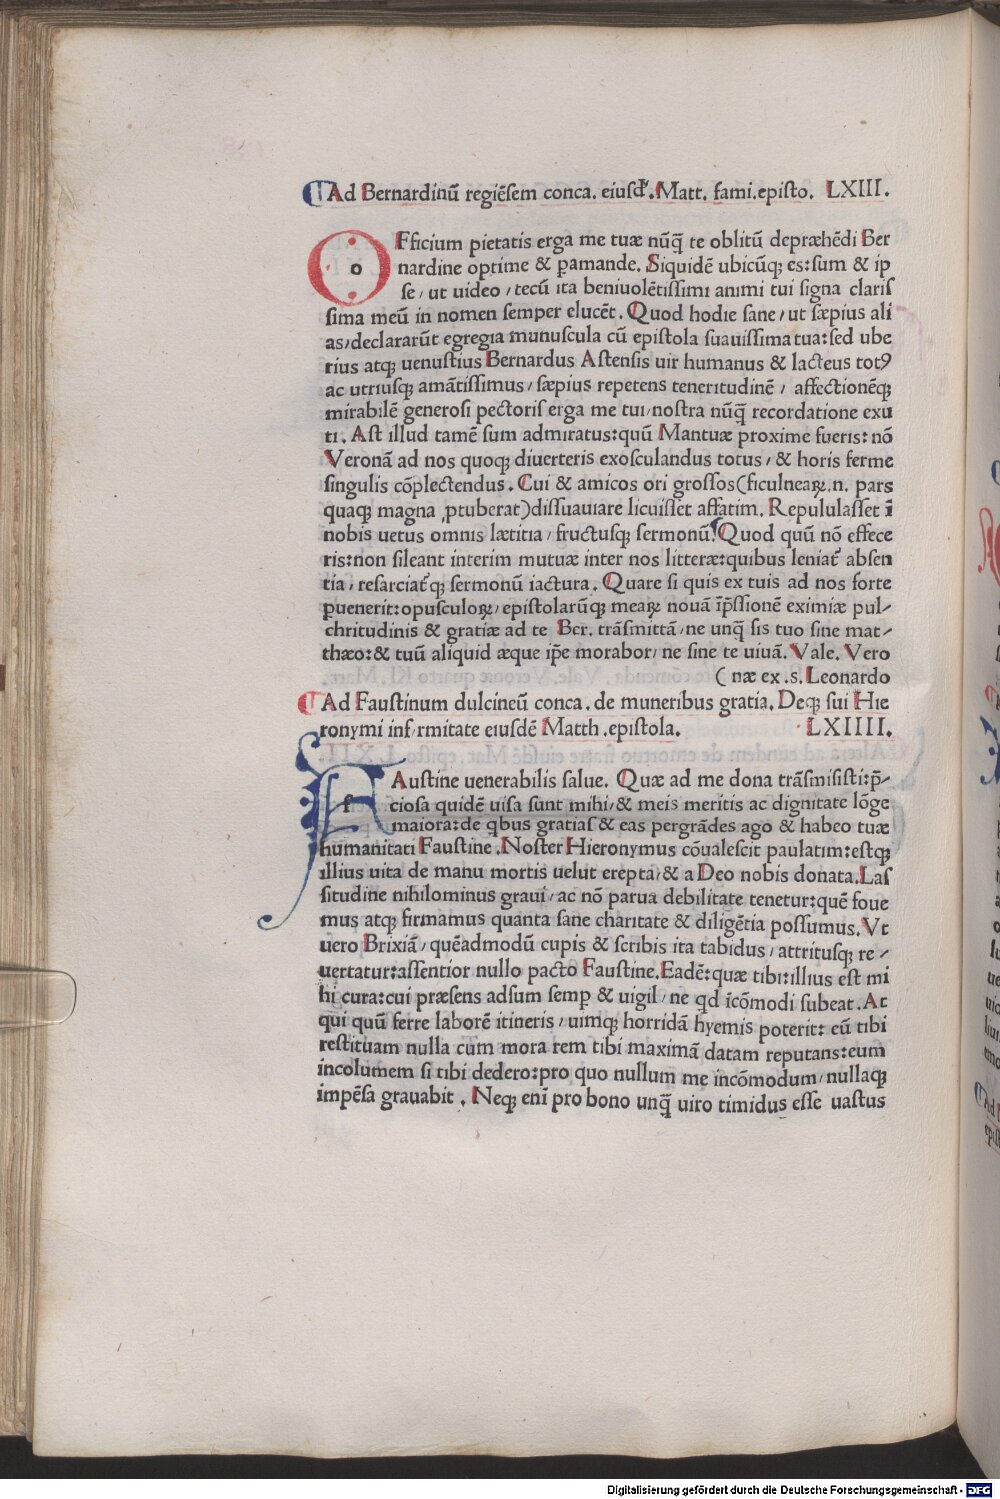 Ad Bernardinū regiēsem conca. eiusd̄. Matt. fami. episto. LXIII.
OFficium pietatis erga me tuæ nūq̄ te oblitū depræhēdi Ber
nardine optime & ꝑamande. Siquidē ubicūqꝫ es: sum & ip
se / ut uideo / tecū ita beniuolētissimi animi tui signa claris
sima meū in nomen semper elucēt. Quod hodie sane / ut sæpius ali
as / declararūt egregia munuscula cū epistola suauissima tua: sed ube
rius atqꝫ uenustius Bernardus Astensis uir humanus & lacteus totꝰ
ac utriusqꝫ amātissimus / sæpius repetens teneritudinē / affectionēqꝫ
mirabilē generosi pectoris erga me tui / nostra nūq̄ recordatione exu
ti. Ast illud tamē sum admiratus: quū Mantuæ proxime fueris: nō
Veronā ad nos quoqꝫ diuerteris exosculandus totus / & horis ferme
singulis cōplectendus. Cui & amicos ori grossos (ficulneaꝝ .n. pars
quaqꝫ magna ꝓtuberat) dissuauiare licuisset affatim. Repululasset ī
nobis uetus omnis lætitia / fructusqꝫ sermonū. Quod quū nō effece
ris: non sileant interim mutuæ inter nos litteræ: quibus leniat᷑ absen
tia / resarciat᷑qꝫ sermonū iactura. Quare si quis ex tuis ad nos forte
ꝑuenerit: opusculoꝝ / epistolarūqꝫ meaꝝ nouā īp̄ssionē eximiæ pul/
chritudinis & gratiæ ad te Ber. trāsmittā / ne unq̄ sis tuo sine mat/
thæo: & tuū aliquid æque ip̄e morabor / ne sine te uiuā. Vale. Vero
( næ ex .s. Leonardo
Ad Faustinum dulcineū conca. de muneribus gratia. Deqꝫ sui Hie
ronymi infirmitate eiusdē Matth. epistola. LXIIII.
FAustine uenerabilis salue. Quæ ad me dona trāsmisisti: p̄/
ciosa quidē uisa sunt mihi / & meis meritis ac dignitate lōge
maiora: de qbus gratias & eas pergrādes ago & habeo tuæ
humanitati Faustine. Noster Hieronymus cōualescit paulatim: estqꝫ
illius uita de manu mortis uelut erepta / & a Deo nobis donata. Las
situdine nihilominus graui / ac nō parua debilitate tenetur: quē foue
mus atqꝫ firmamus quanta sane charitate & diligētia possumus. Vt
uero Brixiā / quēadmodū cupis & scribis ita tabidus / attritusqꝫ re /
uertatur: assentior nullo pacto Faustine. Eadē: quæ tibi: illius est mi
hi cura: cui præsens adsum semꝑ & uigil / ne qd īcōmodi subeat. At
qui quū ferre laborē itineris / uimqꝫ horridā hyemis poterit: eū tibi
restituam nulla cum mora rem tibi maximā datam reputans: eum
incolumem si tibi dedero: pro quo nullum me incōmodum / nullaqꝫ
impēsa grauabit. Neqꝫ eni pro bono unq̄ uiro timidus esse uastus
Digitalisierung gefördert durch die Deutsche Forschungsgemeinschaft - DFG